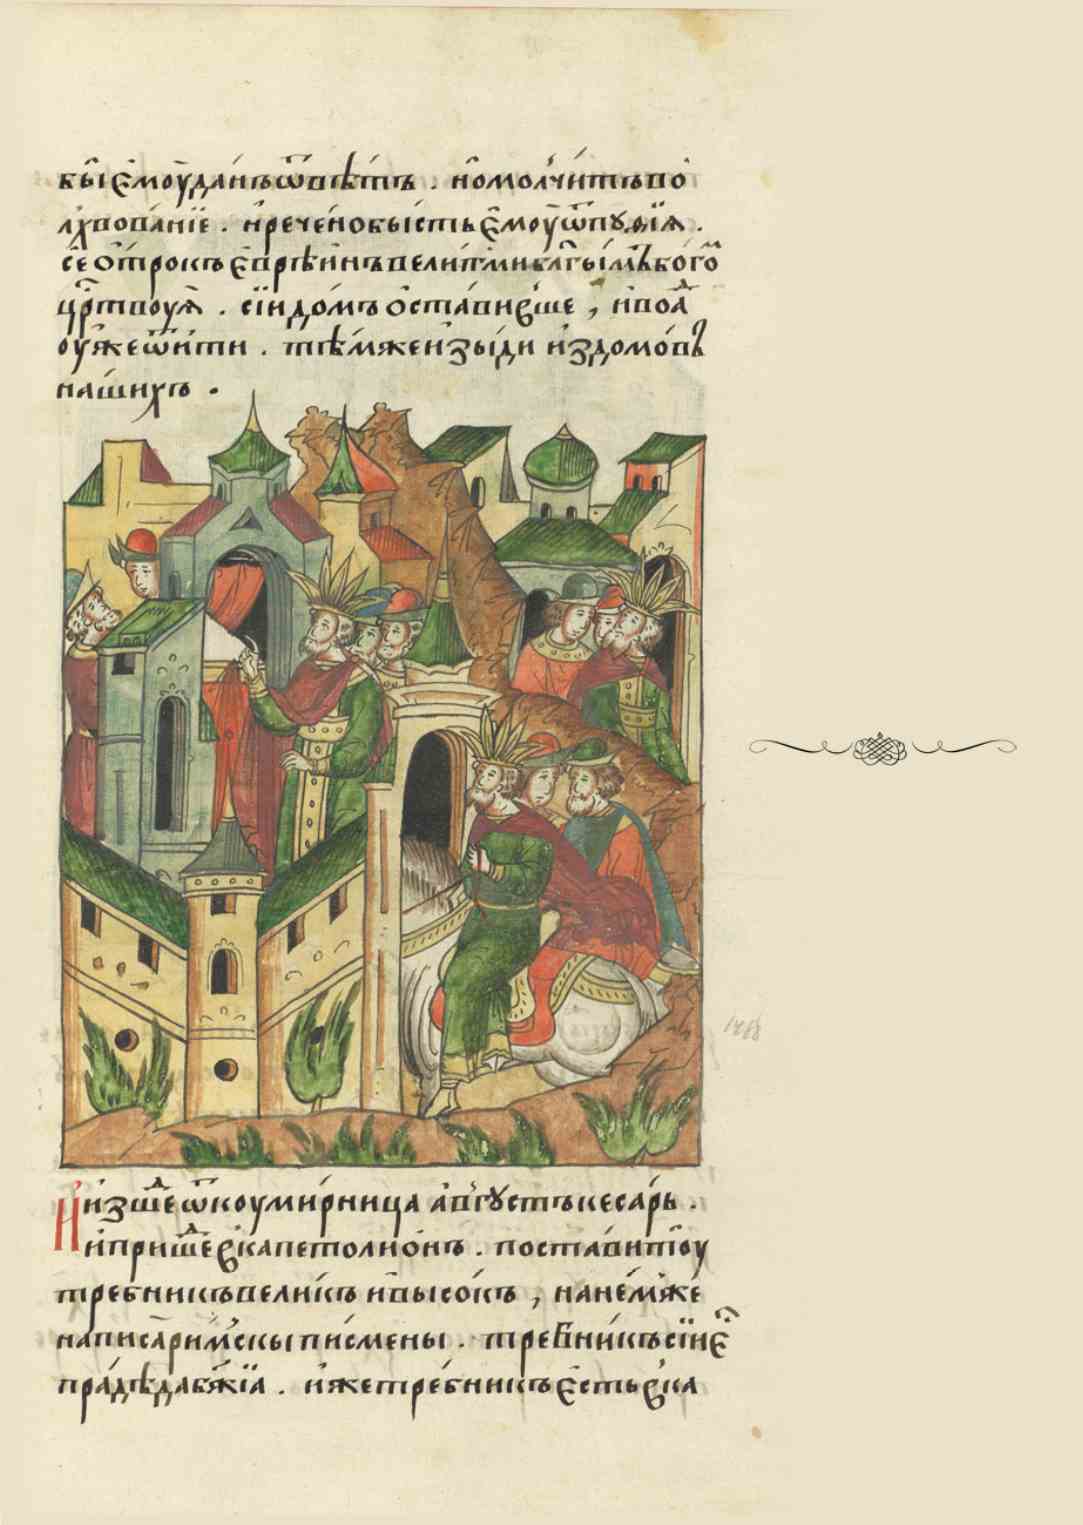 бы́ емоу да́нъ ѿвѣ́тъ . но мол҆чи́тъ во
лхвова́нїе . и҆ рече́но бы́сть емоу̀ ѿ пуѳі́я .
се ѻ҆́трокъ евре́инъ вели́т ми бл҃гы́мъ бо́гоⷨ
црⷭ҇твоуя . сїи до́мъ оста́вивше , и҆ воаⷣ
оу́же ѿи́ти . тѣ́мже изы́ди из домо́въ
на́шихъ .
И изше́ⷣ ѿкоумирница а҆́вгустъ ке́сарь .
и҆ прише́ⷣ в капетоли́онъ . поста́ви тоу
требникъ вели́къ и высо́къ , на не́мже
написа̀ ри́мскы писмены . тре́бни́къ сїи е҆
пра́дѣда бж҃їа . и҆же тре́бникъ е҆сть в ка